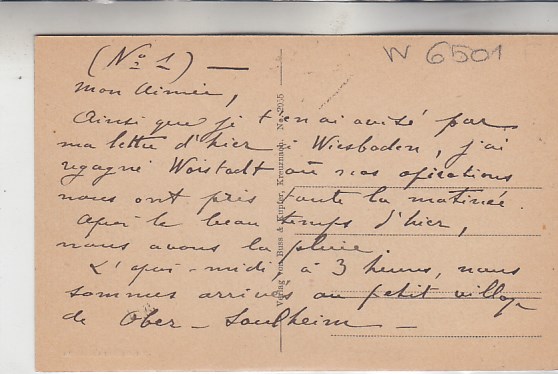 (Nº 1) —
W 6501
mon Aimée,
Ainsi que je t'en ai avisé par
ma lettre d'hier à Wiesbaden, j'ai
regagné Worstadt où nos opérations
nous ont pris toute la matinée.
Après le beau temps d'hier,
nous avons la pluie.
L'après-midi, à 3 heures, nous
sommes arrivés au petit village
de Ober-Saulheim —
Verlag von Buss & Kepfer, Kreuznach. No. 2055